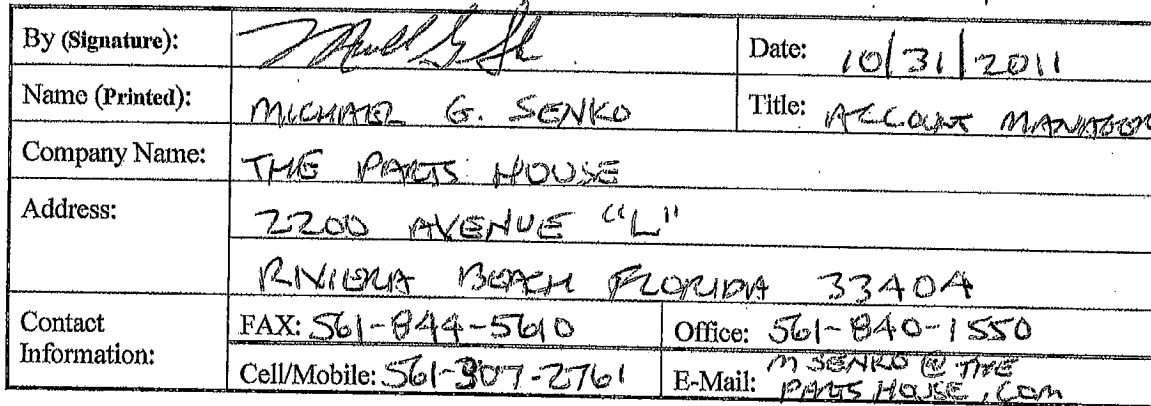 By (Signature): Date: 10/31/2011
Name (Printed): MICHAEL G. SENKO Title: ACCOUNT MANAGER
Company Name: THE PARTS HOUSE
Address: 2200 AVENUE "L"
RIVIERA BEACH FLORIDA 33404
Contact FAX: 561-844-5610 Office: 561-840-1550
Information: Cell/Mobile: 561-307-2761 E-Mail: MSENKO@THE
PARTSHOUSE.COM